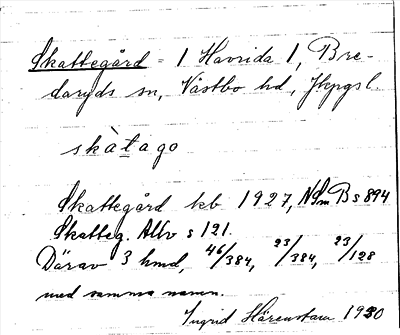 Skattegård = 1 Havrida 1, Bre-
daryds sn, Västbo hd, Jkpgs l.
skàtago
Skattegård kb 1927, NSm B s 894
Skatteg. Allv s 121.
Därav 3 hmd, 46/384, 23/384, 23/128
med samma namn.
Ingrid Härenstam 1930